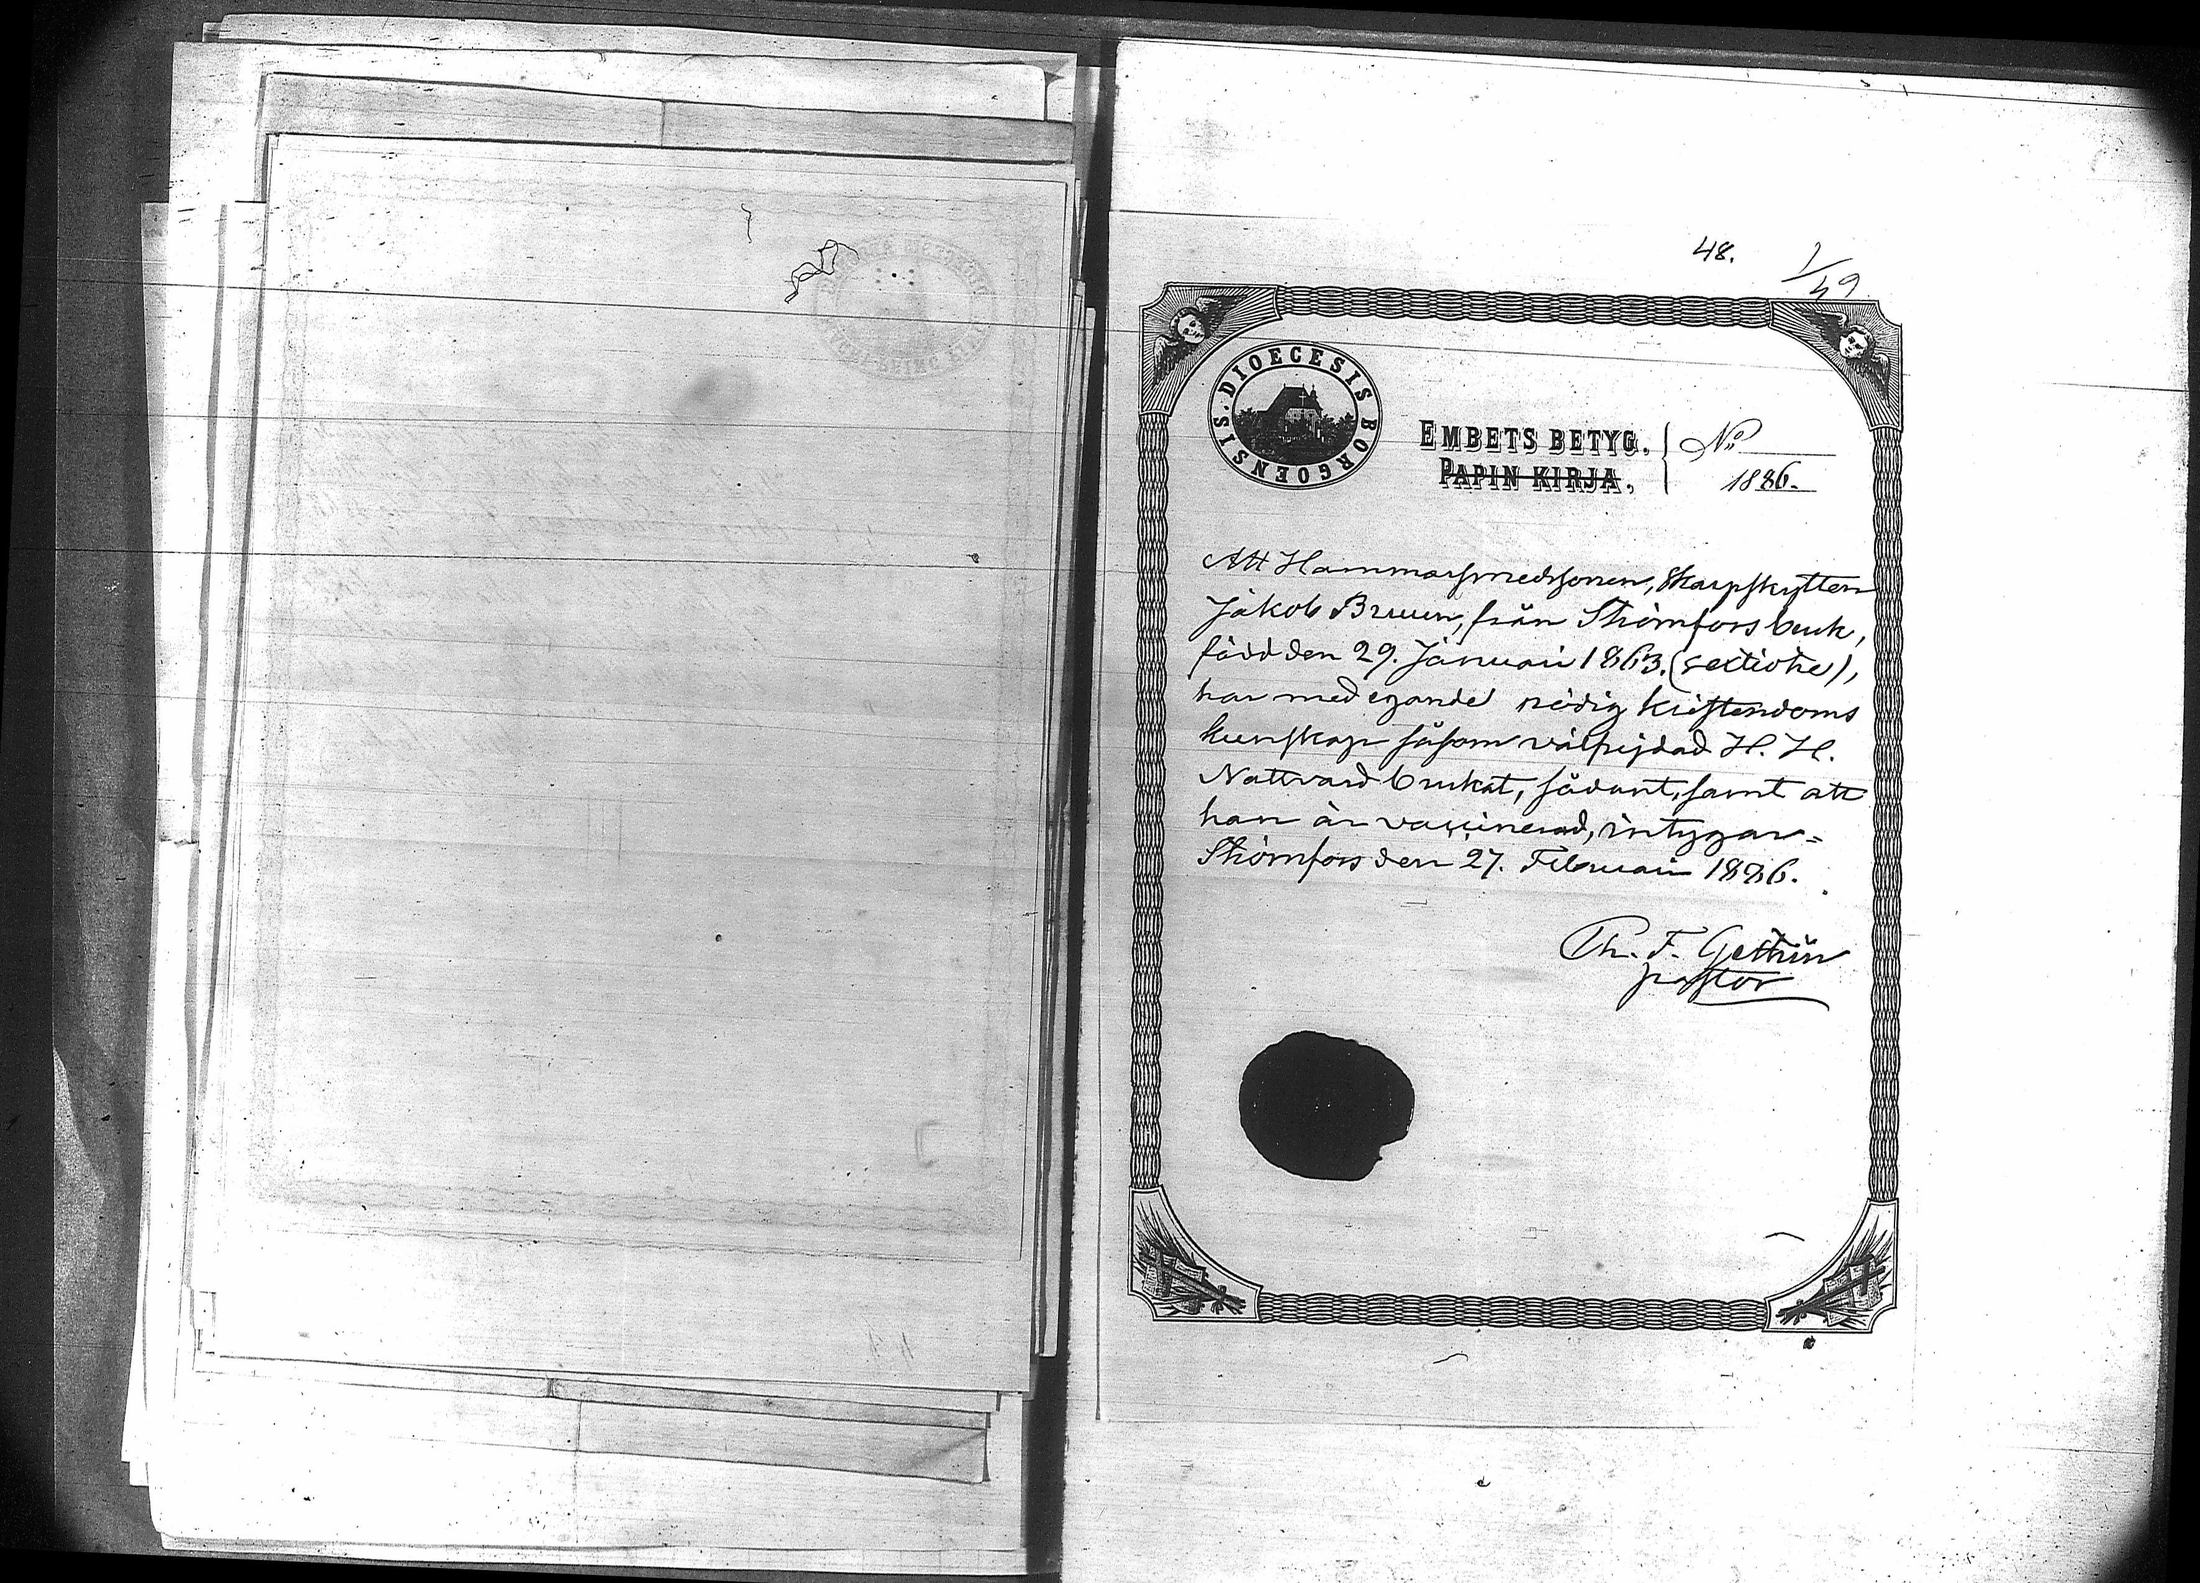 48.
1/49
DIOECESIS BORGOENSIS.
EMBETS BETYG.
PAPIN KIRJA,
No
1886.
Att Hammarsmedssonen, Skarpskytten
Jakob Bruun, från Strömfors bruk,
född den 29. Januari 1863. (sextiotre),
har med egande nödig kristendoms
kunskap såsom välfrejdad H. H.
Nattvard brukat, sådant, samt att
han är vaccinerad, intygar=
Strömfors den 27. Februari 1886.
Th. F. Gestrin
pastor